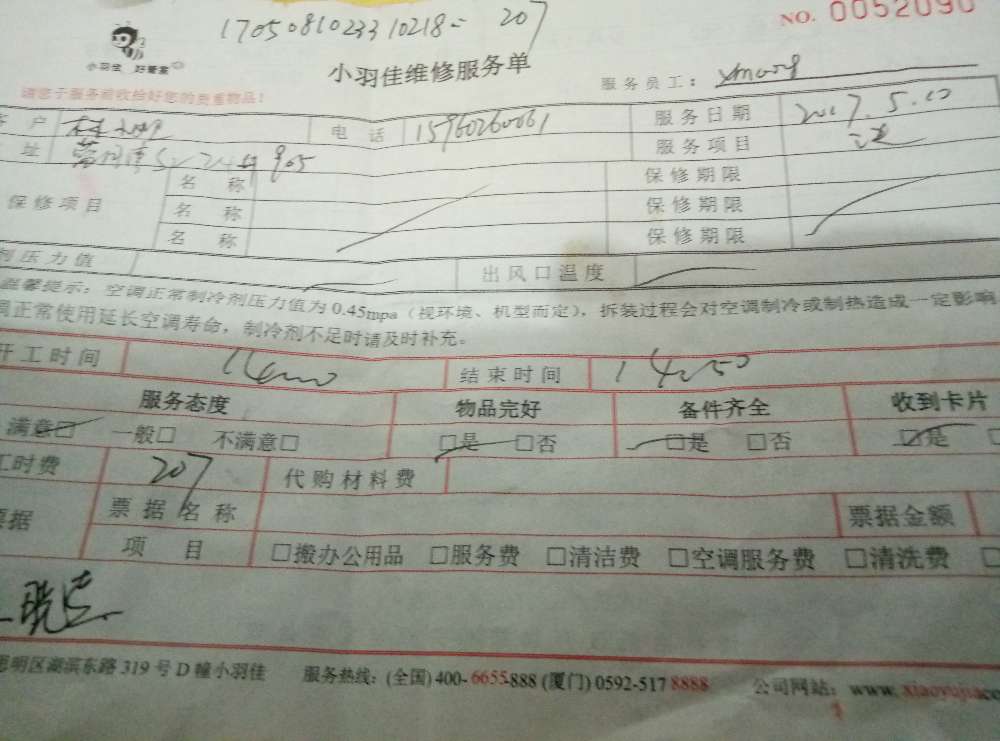 1705081023310218- 207
NO. 0052090
小羽佳 好管家
小羽佳维修服务单
服务员工：
请您于服务前收拾好您的贵重物品！
户 电 话 15960260061 服务日期 2017.5.10
址 905 服务项目
保修项目 名 称 保修期限
名 称 保修期限
名 称 保修期限
剂压力值 出风口温度
温馨提示：空调正常制冷剂压力值为0.45mpa（视环境、机型而定），拆装过程会对空调制冷或制热造成一定影响
调正常使用延长空调寿命，制冷剂不足时请及时补充。
开工时间 结束时间 14:50
服务态度 物品完好 备件齐全 收到卡片
满意□ 一般□ 不满意□ □是 □否 □是 □否 □是
工时费 207 代购材料费
票据 票据名称 票据金额
项 目 □搬办公用品 □服务费 □清洁费 □空调服务费 □清洗费
思明区湖滨东路319号D幢小羽佳 服务热线：(全国)400-6655-888 (厦门) 0592-517 8888 公司网站：www.xiaoyujia.co